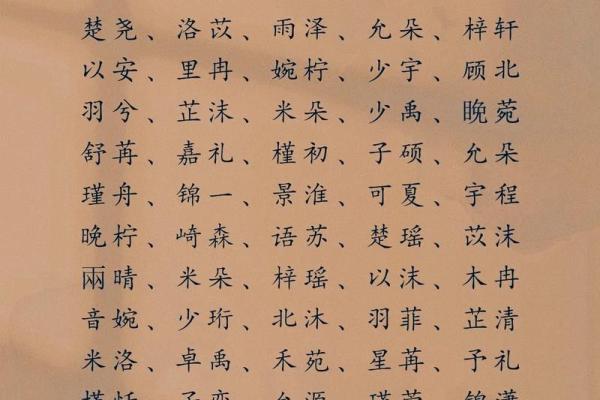 楚尧、洛苡、雨泽、允朵、梓轩
以安、里冉、婉柠、少宇、顾北
羽兮、芷沫、米朵、少禹、晚菀
舒苒、嘉礼、槿初、子硕、允朵
瑾舟、锦一、景淮、可夏、宇程
晚柠、崎森、语苏、楚瑶、苡沫
兩晴、米朵、梓瑶、以沫、木冉
音婉、少珩、北沐、羽菲、芷清
米洛、卓禹、禾苑、星苒、予礼